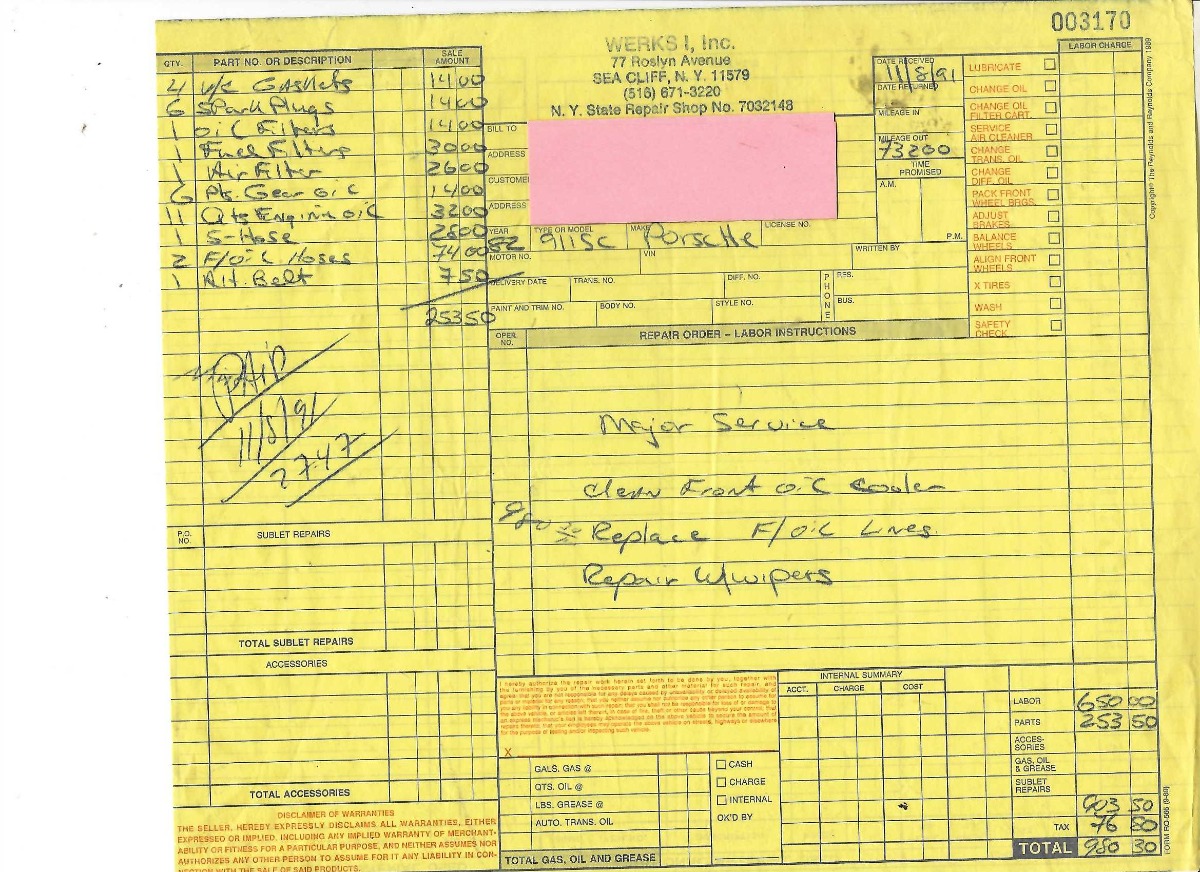 003170
WERKS I, Inc.
77 Roslyn Avenue
SEA CLIFF, N. Y. 11579
(516) 671-3220
N. Y. State Repair Shop No. 7032148
QTY. PART NO. OR DESCRIPTION SALE AMOUNT
4 v/c Gaskets 14 00
6 Spark Plugs 14 00
1 Oil Filters 14 00
1 Fuel Filters 30 00
1 Air Filter 26 00
6 Pts. Gear oil 14 00
11 Qts Engine oil 32 00
1 S-Hose 28 00
2 F/oil Hoses 74 00
1 Alt. Belt 7 50
253 50
PAID
11/8/91
2747
P.O. NO. SUBLET REPAIRS
TOTAL SUBLET REPAIRS
ACCESSORIES
TOTAL ACCESSORIES
DISCLAIMER OF WARRANTIES
THE SELLER, HEREBY EXPRESSLY DISCLAIMS ALL WARRANTIES, EITHER
EXPRESSED OR IMPLIED, INCLUDING ANY IMPLIED WARRANTY OF MERCHANT-
ABILITY OR FITNESS FOR A PARTICULAR PURPOSE, AND NEITHER ASSUMES NOR
AUTHORIZES ANY OTHER PERSON TO ASSUME FOR IT ANY LIABILITY IN CON-
NECTION WITH THE SALE OF SAID PRODUCTS.
BILL TO
ADDRESS
CUSTOMER
ADDRESS
YEAR TYPE OR MODEL MAKE LICENSE NO.
82 911sc Porsche
MOTOR NO. VIN WRITTEN BY
DELIVERY DATE TRANS. NO. DIFF. NO. PHONE RES.
PAINT AND TRIM NO. BODY NO. STYLE NO. BUS.
DATE RECEIVED
11/8/91
DATE RETURNED
MILEAGE IN
MILEAGE OUT
73200
TIME PROMISED
A.M.
P.M.
LABOR CHARGE
LUBRICATE
CHANGE OIL
CHANGE OIL FILTER CART.
SERVICE AIR CLEANER
CHANGE TRANS. OIL
CHANGE DIFF. OIL
PACK FRONT WHEEL BRGS.
ADJUST BRAKES
BALANCE WHEELS
ALIGN FRONT WHEELS
X TIRES
WASH
SAFETY CHECK
OPER. NO. REPAIR ORDER – LABOR INSTRUCTIONS
Major Service
Clean Front oil cooler
980 30 Replace F/oil Lines.
Repair W/wipers
X
GALS. GAS @
QTS. OIL @
LBS. GREASE @
AUTO. TRANS. OIL
TOTAL GAS, OIL AND GREASE
CASH
CHARGE
INTERNAL
OK'D BY
INTERNAL SUMMARY
ACCT. CHARGE COST
LABOR 650 00
PARTS 253 50
ACCES-SORIES
GAS, OIL & GREASE
SUBLET REPAIRS
903 50
TAX 76 80
TOTAL 980 30